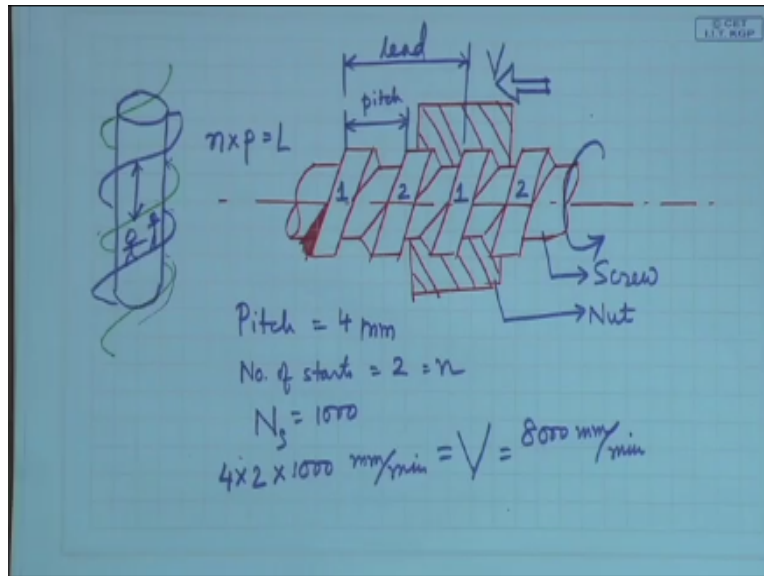 © CET
I.I.T. KGP
Lead
V
pitch
n×p=L
1 2 1 2
Screw
Nut
Pitch = 4 mm
No. of starts = 2 = n
Ns = 1000
4×2×1000 mm/min = V = 8000 mm/min